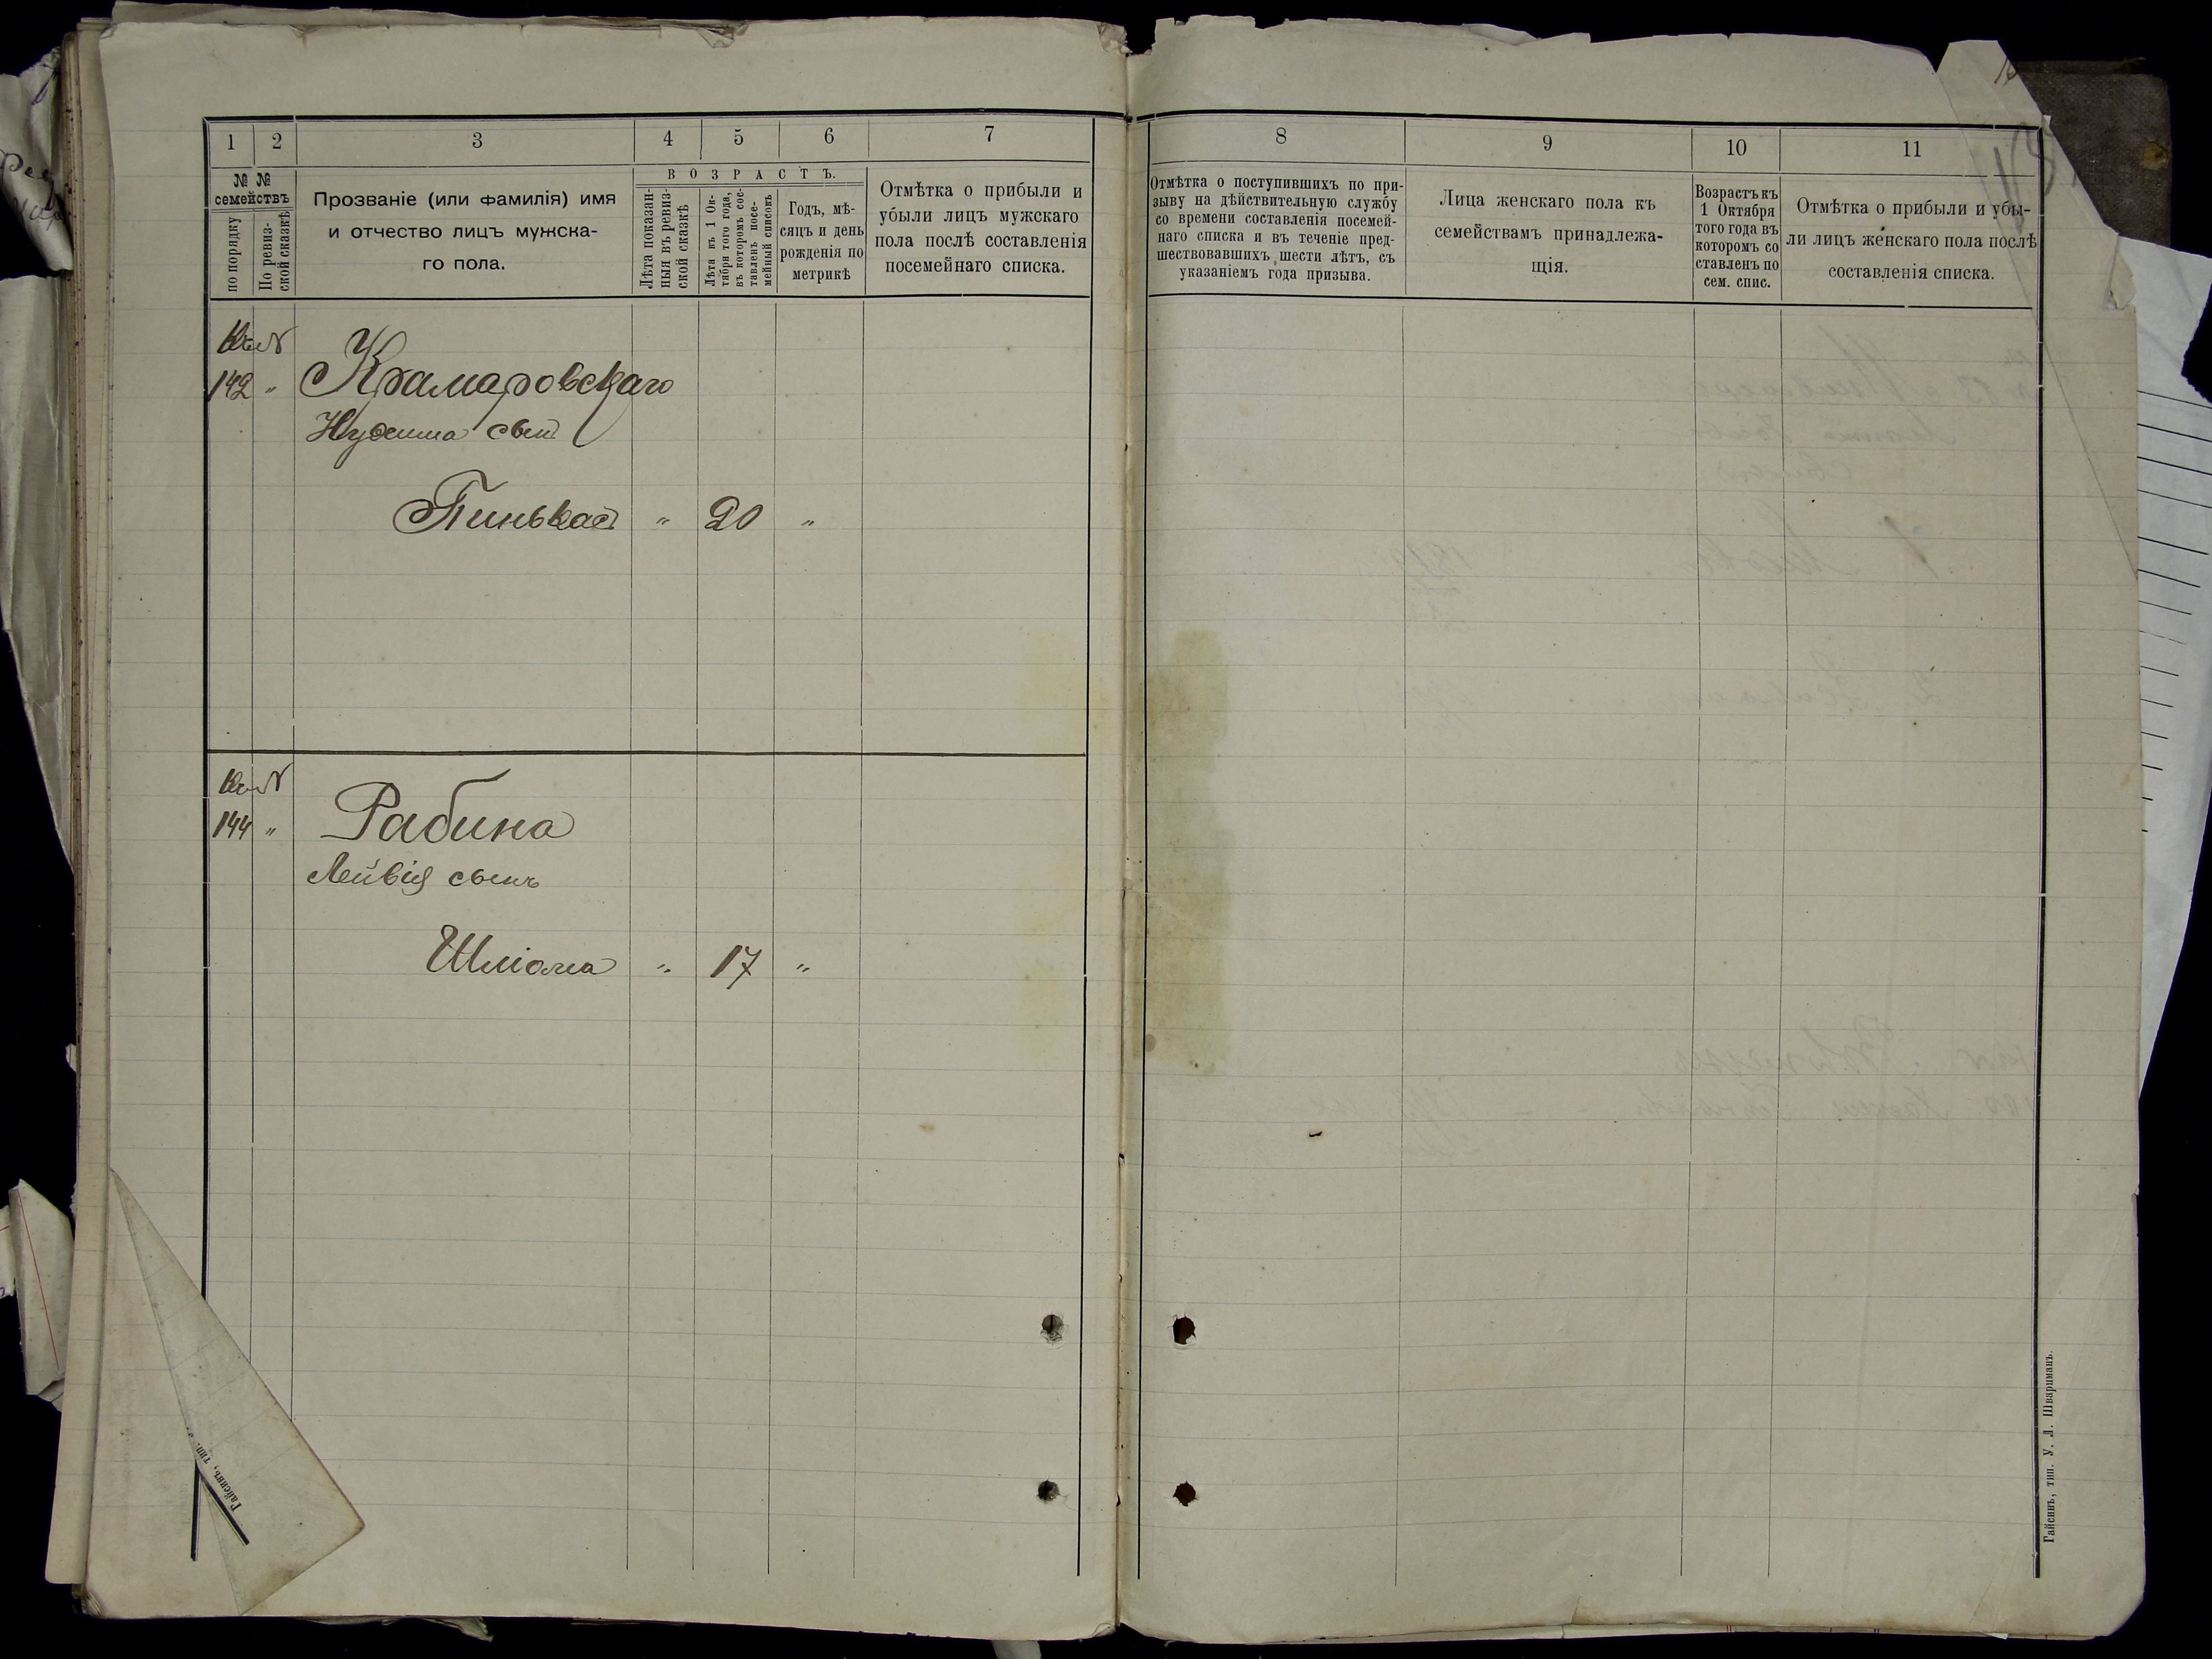 1 2 3 4 5 6 7
№ № семействъ
по порядку
По ревиз-
ской сказкѣ
Прозваніе (или фамилія) имя
и отчество лицъ мужска-
го пола.
ВОЗРАСТЪ.
Лѣта показан-
ныя въ ревиз-
ской сказкѣ
Лѣта къ 1 Ок-
тября того года,
въ которомъ сос-
тавленъ посе-
мейный списокъ
Годъ, мѣ-
сяцъ и день
рожденія по
метрикѣ
Отмѣтка о прибыли и
убыли лицъ мужскаго
пола послѣ составленія
посемейнаго списка.
142 " Крамаровскаго
сынъ
Пинькас " 20 "
144 " Рабина
Лейвія сынъ
Шліома " 17 "
Гайсинъ, тип.
8 9 10 11
Отмѣтка о поступившихъ по при-
зыву на дѣйствительную службу
со времени составленія посемей-
наго списка и въ теченіе пред-
шествовавшихъ шести лѣтъ, съ
указаніемъ года призыва.
Лица женскаго пола къ
семействамъ принадлежа-
щія.
Возрастъ къ
1 Октября
того года въ
которомъ со
ставленъ по
сем. спис.
Отмѣтка о прибыли и убы-
ли лицъ женскаго пола послѣ
составленія списка.
Гайсинъ, тип. У. Л. Шварцманъ.